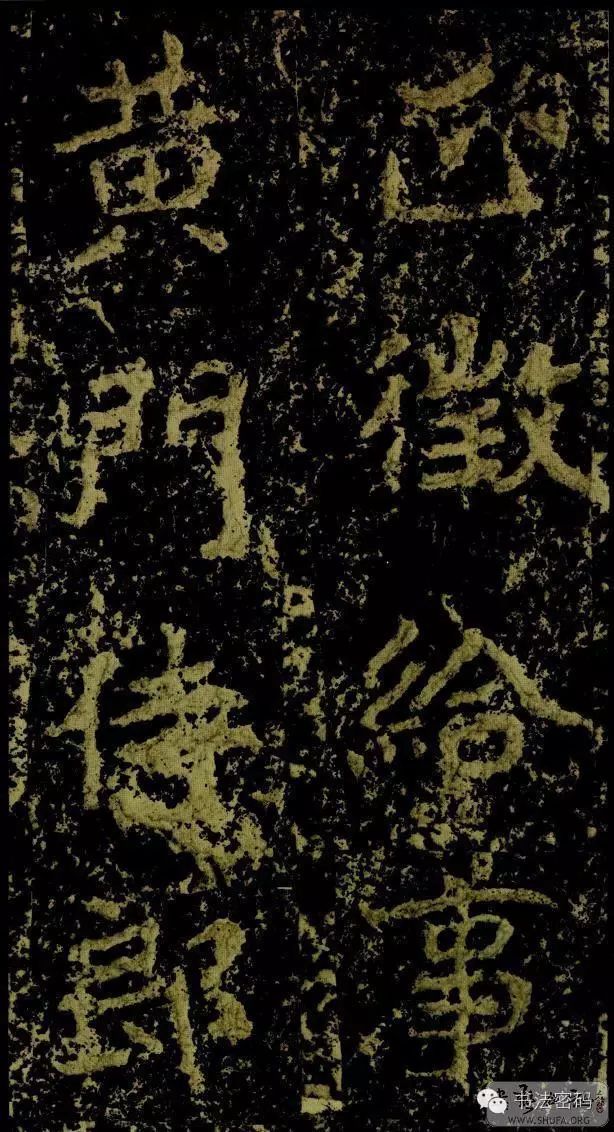 徵給事
黄門侍郎
书法密码
WWW.SHUFA.ORG